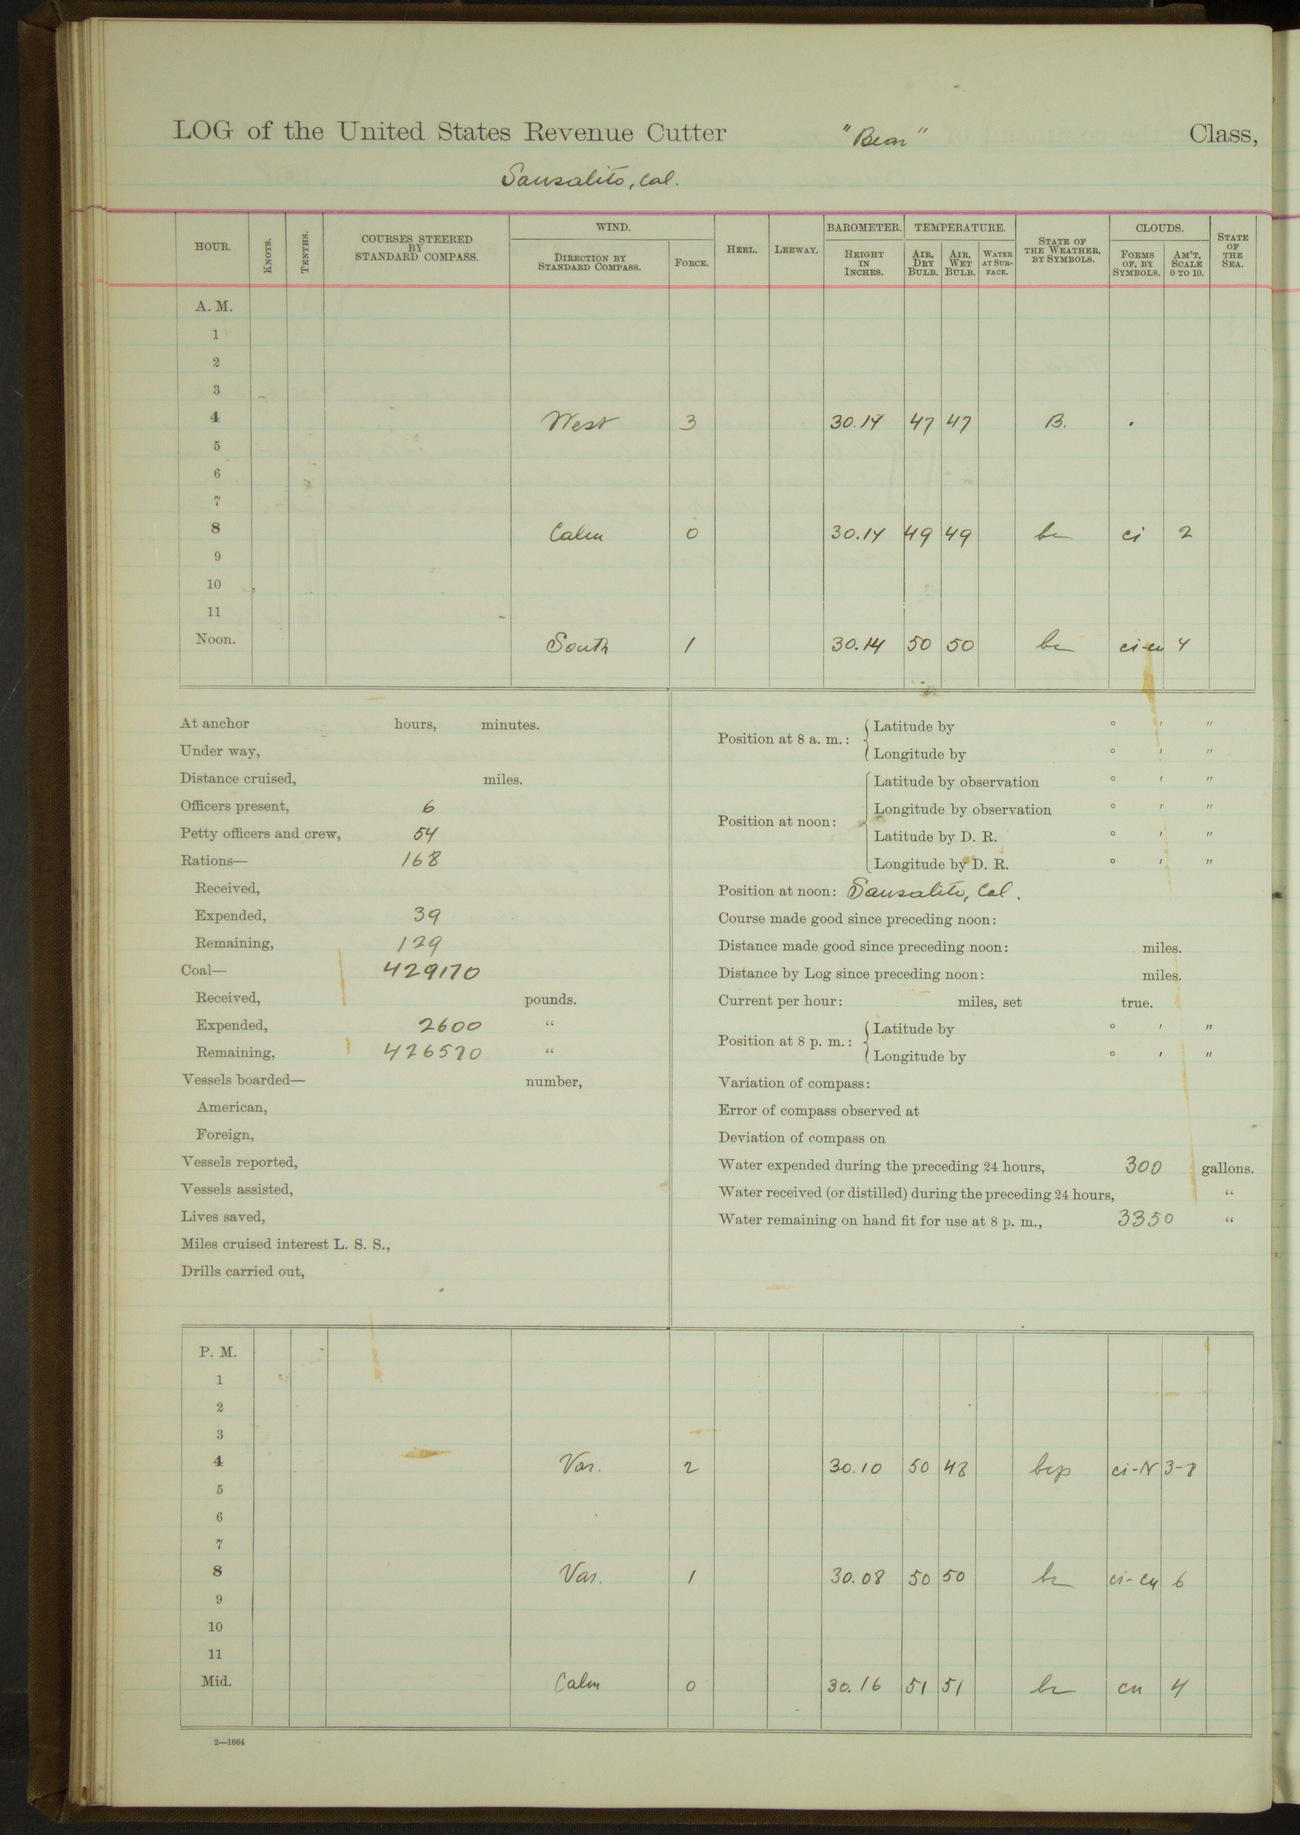 LOG of the United States Revenue Cutter "Bear" Class,
Sausalito, Cal.
HOUR. KNOTS. TENTHS. COURSES STEERED BY STANDARD COMPASS. WIND. DIRECTION BY STANDARD COMPASS. FORCE. HEEL. LEEWAY. BAROMETER. HEIGHT IN INCHES. TEMPERATURE. AIR, DRY BULB. AIR, WET BULB. WATER AT SURFACE. STATE OF THE WEATHER, BY SYMBOLS. CLOUDS. FORMS OF, BY SYMBOLS. AM'T, SCALE 0 TO 10. STATE OF THE SEA.
A. M.
1
2
3
4 West 3 30.14 47 47 B. .
5
6
7
8 Calm 0 30.14 49 49 bc ci 2
9
10
11
Noon. South 1 30.14 50 50 bc ci-cu 4
At anchor hours, minutes.
Under way,
Distance cruised, miles.
Officers present, 6
Petty officers and crew, 54
Rations— 168
Received,
Expended, 39
Remaining, 129
Coal— 429170
Received, pounds.
Expended, 2600 "
Remaining, 426570 "
Vessels boarded— number,
American,
Foreign,
Vessels reported,
Vessels assisted,
Lives saved,
Miles cruised interest L. S. S.,
Drills carried out,
Position at 8 a. m.: Latitude by ° ′ ″
Longitude by ° ′ ″
Position at noon: Latitude by observation ° ′ ″
Longitude by observation ° ′ ″
Latitude by D. R. ° ′ ″
Longitude by D. R. ° ′ ″
Position at noon: Sausalito, Cal.
Course made good since preceding noon:
Distance made good since preceding noon: miles.
Distance by Log since preceding noon: miles.
Current per hour: miles, set true.
Position at 8 p. m.: Latitude by ° ′ ″
Longitude by ° ′ ″
Variation of compass:
Error of compass observed at
Deviation of compass on
Water expended during the preceding 24 hours, 300 gallons.
Water received (or distilled) during the preceding 24 hours, "
Water remaining on hand fit for use at 8 p. m., 3350 "
P. M.
1
2
3
4 Var. 2 30.10 50 48 bcp ci-N 3-8
5
6
7
8 Var. 1 30.08 50 50 bc ci-cu 6
9
10
11
Mid. Calm 0 30.16 51 51 bc cu 4
2—1664